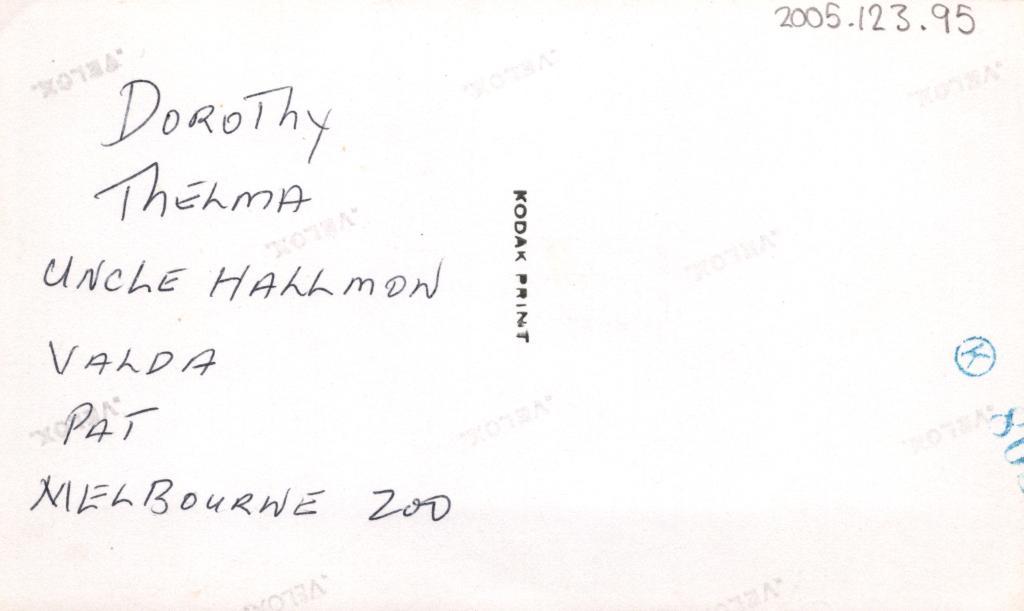 2005.123.95
DOROTHY
THELMA
UNCLE HALLMON
VALDA
PAT
MELBOURNE ZOO
KODAK PRINT
"VELOX"
"VELOX"
"VELOX"
"VELOX"
"VELOX"
"VELOX"
"VELOX"
"VELOX"
"VELOX"
"VELOX"
K